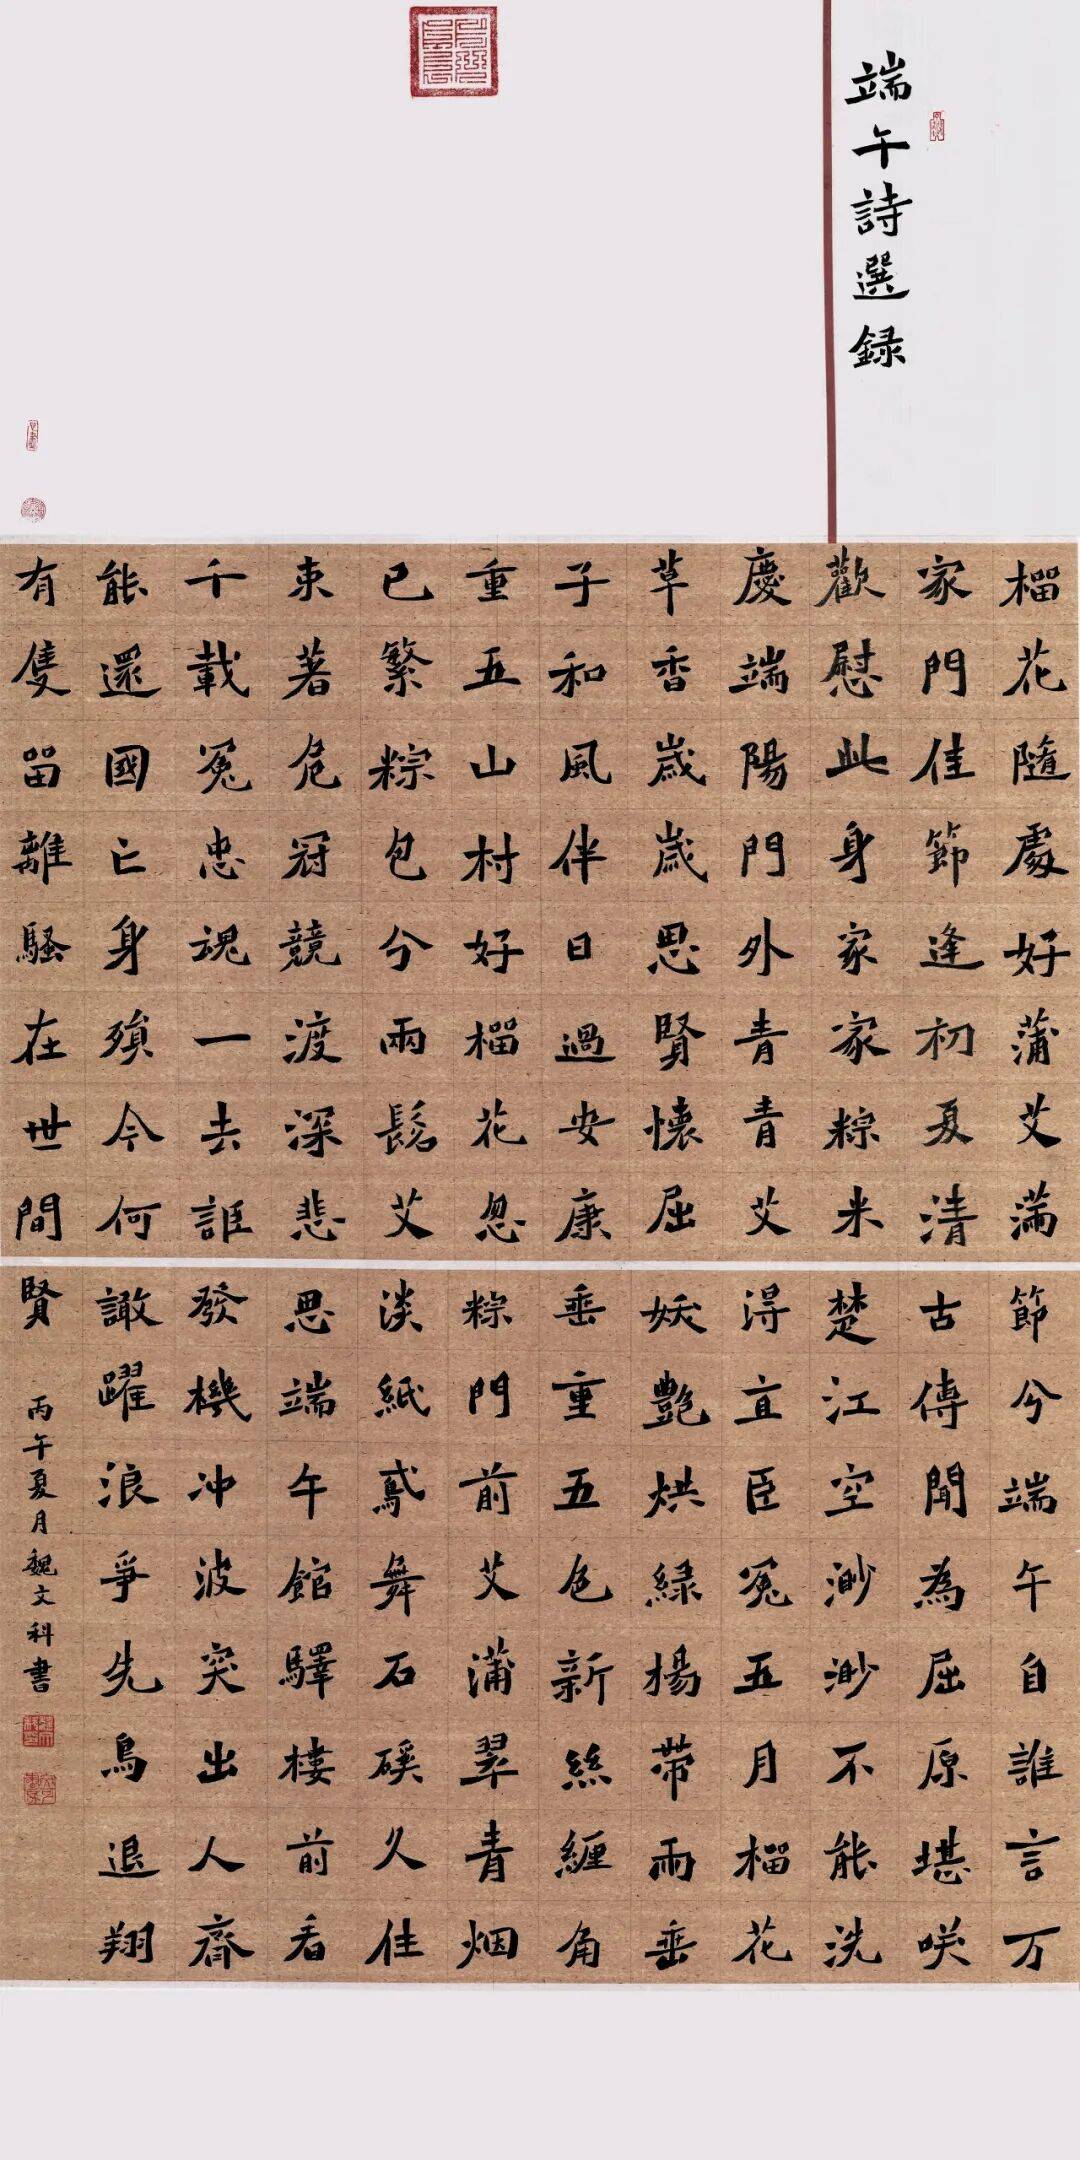 端午詩選録
榴花隨處好蒲艾滿
家門佳節逢初夏清
歡慰此身家家粽米
慶端陽門外青青艾
草香歲歲思賢懷屈
子和風伴日過安康
重五山村好榴花忽
已繁粽包分兩髻艾
束著危冠競渡深悲
千載冤忠魂一去詎
能還國亡身殞今何
有隻留離騷在世間
節分端午自誰言万
古傳聞為屈原堪咲
楚江空渺渺不能洗
淂直臣冤五月榴花
妖艷烘綠楊帶雨垂
垂重五色新絲纏角
粽門前艾蒲翠青烟
淡紙鳶舞石磎久住
思端午館驛樓前看
發機冲波突出人齊
譀躍浪爭先鳥退翔
賢
丙午夏月魏文科書